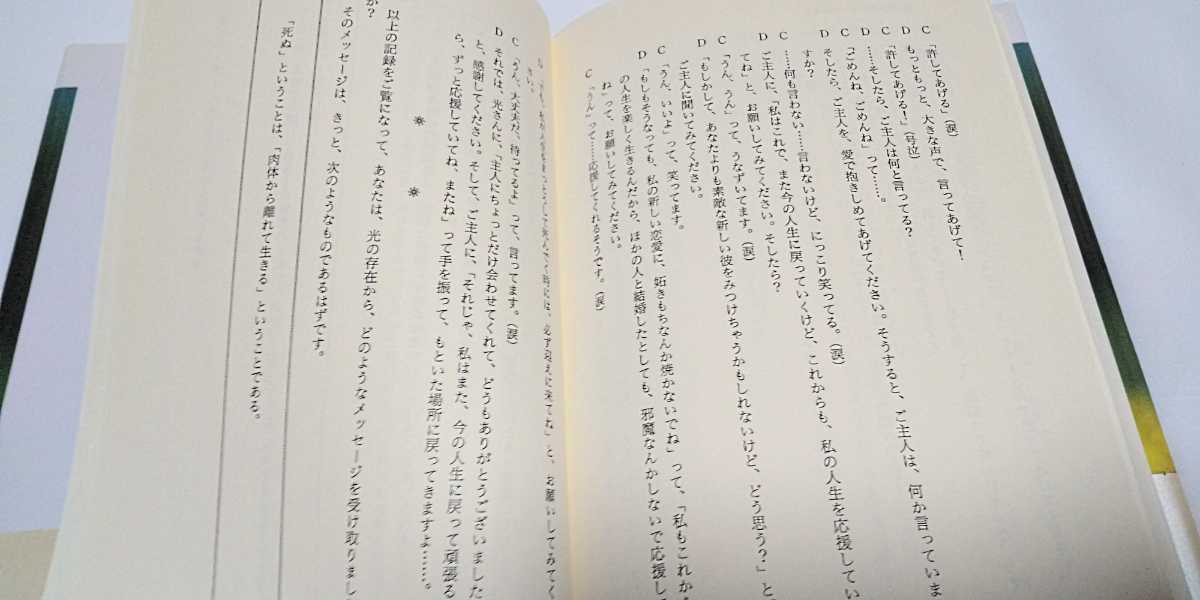 C 「許してあげる」(涙)
D もっともっと、大きな声で、言ってあげて！
C 「許してあげる！」(号泣)
D ……そしたら、ご主人は何と言ってる？
C 「ごめんね、ごめんね」って……。
D そしたら、ご主人を、愛で抱きしめてあげてください。そうすると、ご主人は、何か言っていま
すか？
C ……何も言わない……言わないけど、にっこり笑ってる。(涙)
D ご主人に、「私はこれで、また今の人生に戻っていくけど、これからも、私の人生を応援してい
てね」と、お願いしてみてください。そしたら？
C 「うん、うん」って、うなずいてます。(涙)
D 「もしかして、あなたよりも素敵な新しい彼をみつけちゃうかもしれないけど、どう思う？」と
ご主人に聞いてみてください。
C 「うん、いいよ」って、笑ってます。
D 「もしもそうなっても、私の新しい恋愛に、妬きもちなんか焼かないでね」って、「私もこれか
の人生を楽しく生きるんだから、ほかの人と結婚したとしても、邪魔なんかしないで応援し
ね」って、お願いしてみてください。
C 「うん」って……応援してくれるそうです。(涙)
必ず迎えに来てね」と、お願いしてみてく
さい。
C 「うん、大丈夫だ、待ってるよ」って、言ってます。(涙)
D それでは、光さんに、「主人にちょっとだけ会わせてくれて、どうもありがとうございました
と、感謝してください。そして、ご主人に、「それじゃ、私はまた、今の人生に戻って頑張る
ら、ずっと応援していてね、またね」って手を振って、もといた場所に戻ってきますよ……。
以上の記録をご覧になって、あなたは、光の存在から、どのようなメッセージを受け取りまし
か？
そのメッセージは、きっと、次のようなものであるはずです。
「死ぬ」ということは、「肉体から離れて生きる」ということである。